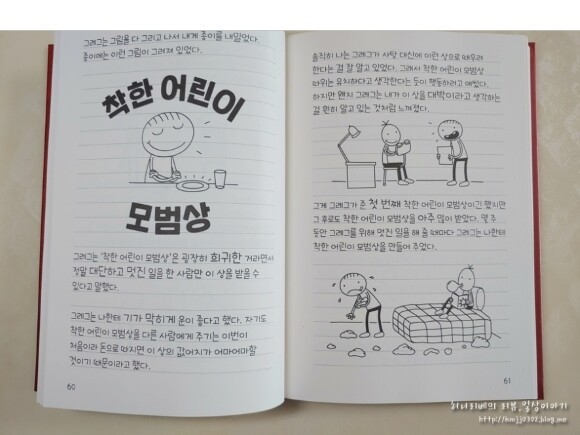 그레그는 그림을 다 그리고 나서 내게 종이를 내밀었다.
종이에는 이런 그림이 그려져 있었다.
착한 어린이
모범상
그레그는 '착한 어린이 모범상'은 굉장히 희귀한 거라면서
정말 대단하고 멋진 일을 한 사람만 이 상을 받을 수
있다고 말했다.
그레그는 나한테 기가 막히게 운이 좋다고 했다. 자기도
착한 어린이 모범상을 다른 사람에게 주기는 이번이
처음이라 돈으로 따지면 이 상의 값어치가 어마어마할
것이기 때문이라고 했다.
60
솔직히 나는 그레그가 사탕 대신에 이런 상으로 때우려
한다는 걸 잘 알고 있었다. 그래서 착한 어린이 모범상
따위는 유치하다고 생각한다는 듯이 행동하려고 애썼다.
하지만 왠지 그레그는 내가 이 상을 대박이라고 생각하는
걸 훤히 알고 있는 것처럼 느껴졌다.
그게 그레그가 준 첫 번째 착한 어린이 모범상이긴 했지만
그 후로도 착한 어린이 모범상을 아주 많이 받았다. 몇 주
동안 그레그를 위해 멋진 일을 해 줄 때마다 그레그는 나한테
착한 어린이 모범상을 만들어 주었다.
61
하나리베의 리뷰, 일상이야기
http://kmjj0302.blog.me